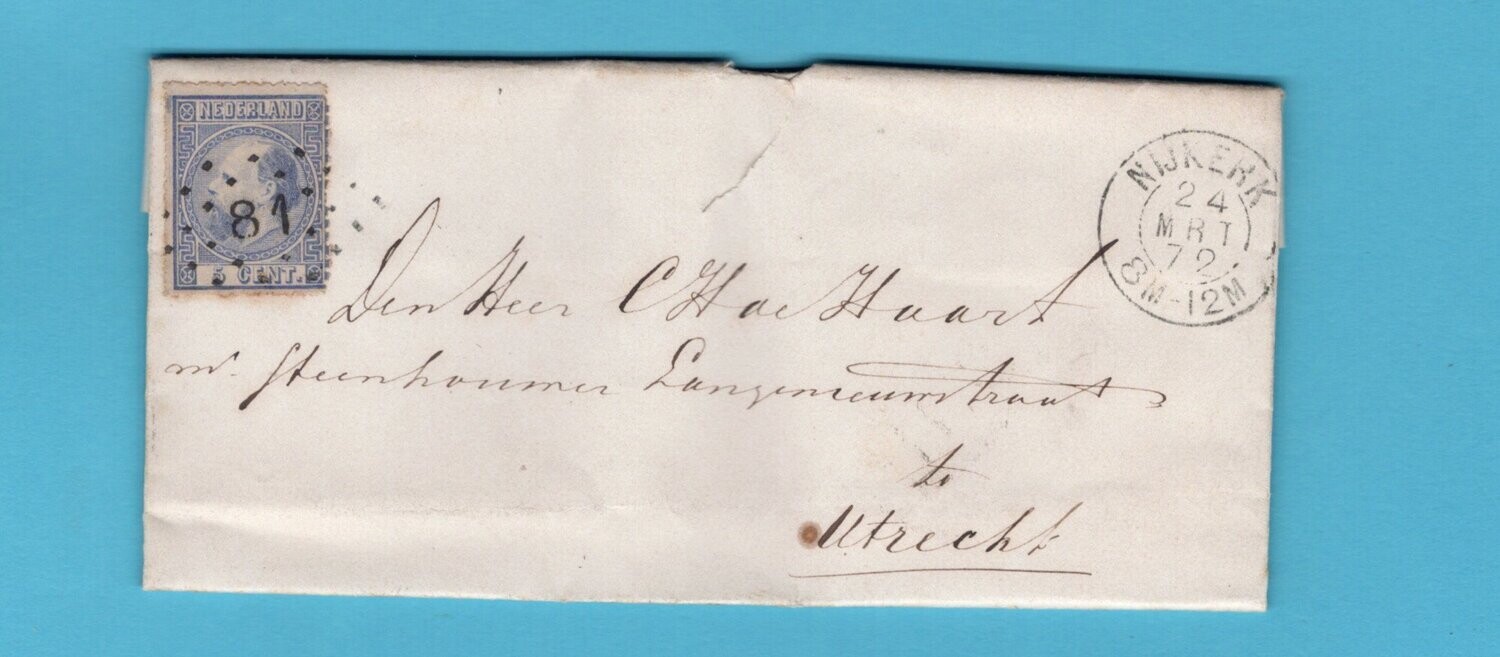 NEDERLAND
81
5 CENT.
NIJKERK
24
MRT
72
8M-12M
Den Heer C Hoe Haart
Steenhouwer Langenieuwstraat
te
Utrecht